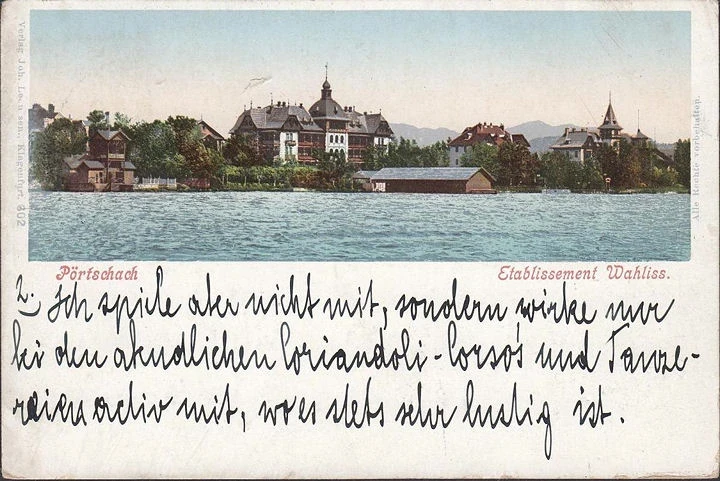 Verlag Joh. Leon sen., Klagenfurt. 802
Alle Rechte vorbehalten.
Pörtschach
Etablissement Wahliss.
2. Ich spiele aber nicht mit, sondern wirke nur
bei den abendlichen Coriandoli-Corso's und Tanze-
reien activ mit, wo es stets sehr lustig ist.